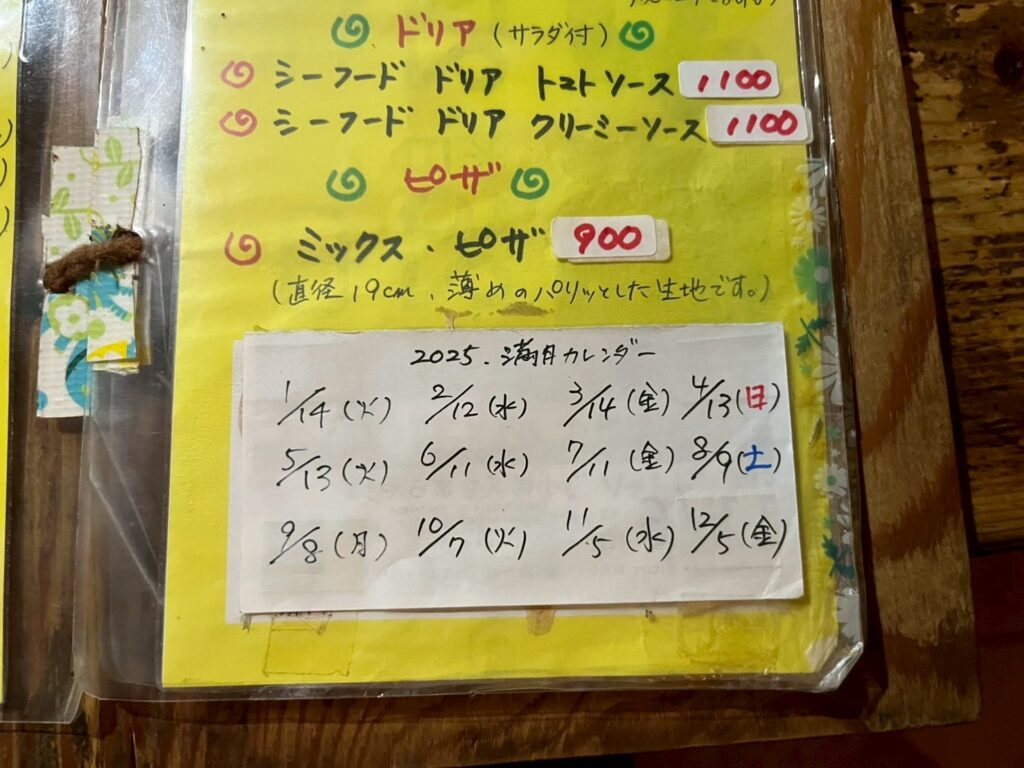 ドリア (サラダ付)
シーフード ドリア トマトソース 1100
シーフード ドリア クリーミーソース 1100
ピザ
ミックス・ピザ 900
(直径19cm、薄めのパリッとした生地です。)
2025.満月カレンダー
1/14(火) 2/12(水) 3/14(金) 4/13(日)
5/13(火) 6/11(水) 7/11(金) 8/9(土)
9/8(月) 10/7(火) 11/5(水) 12/5(金)